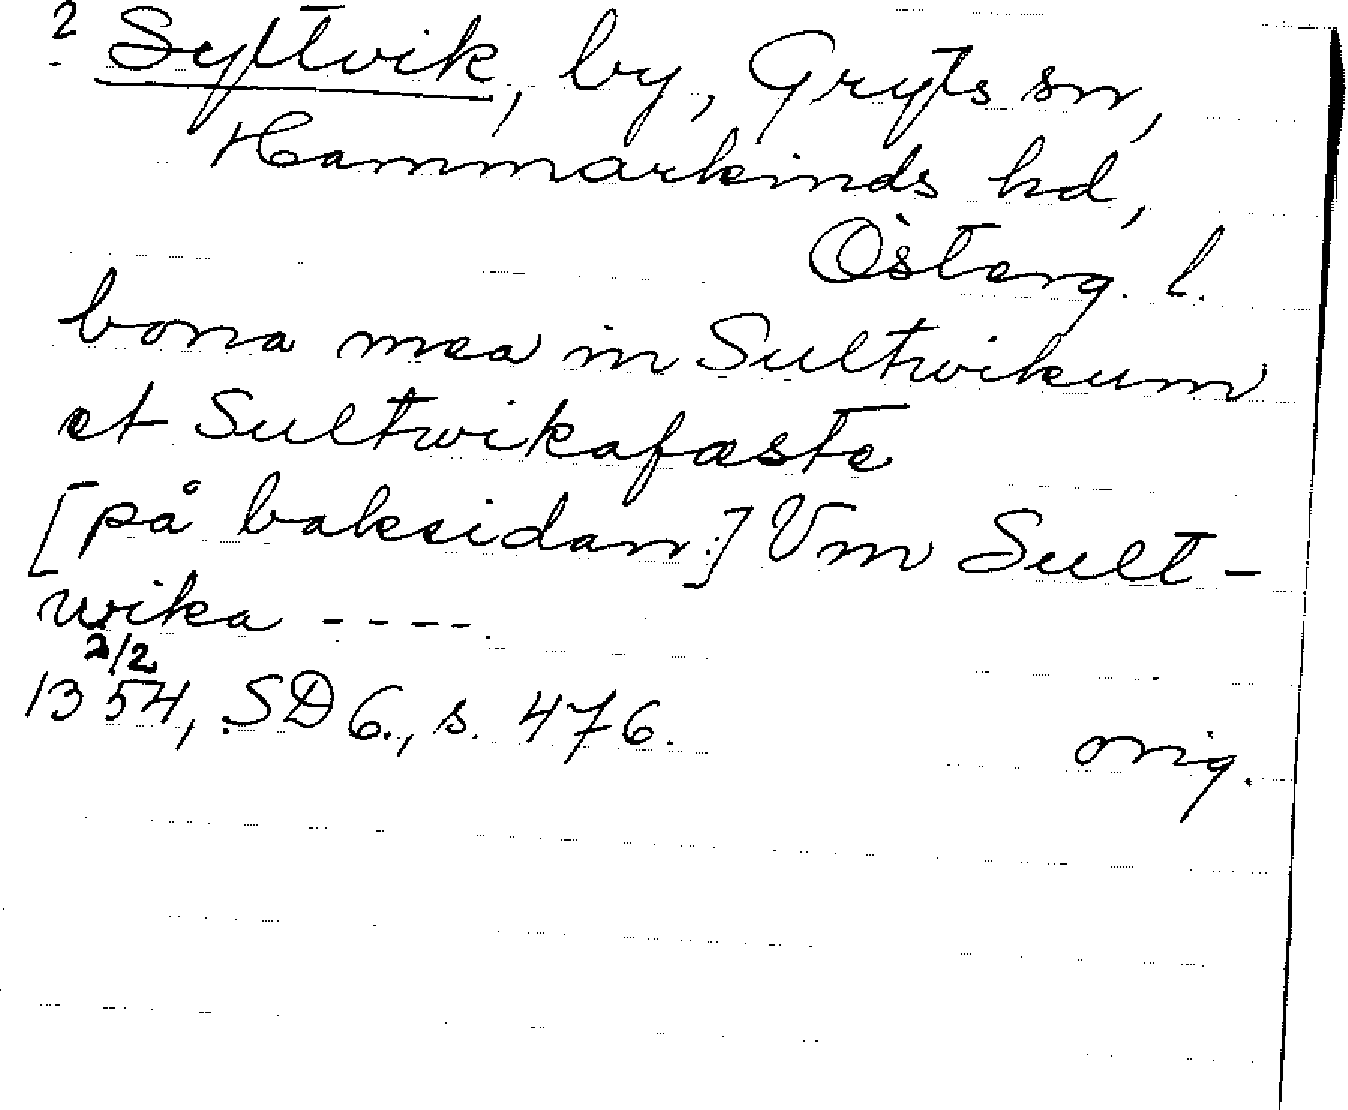 ? Syltvik, by, Gryts sn,
Hammarkinds hd,
Österg. l.
bona mea in Sultwikum
et Sultwikafæste
[på baksidan:] Vm Sult-
wika ----
2/2
1354, SD 6., s. 476.
orig.